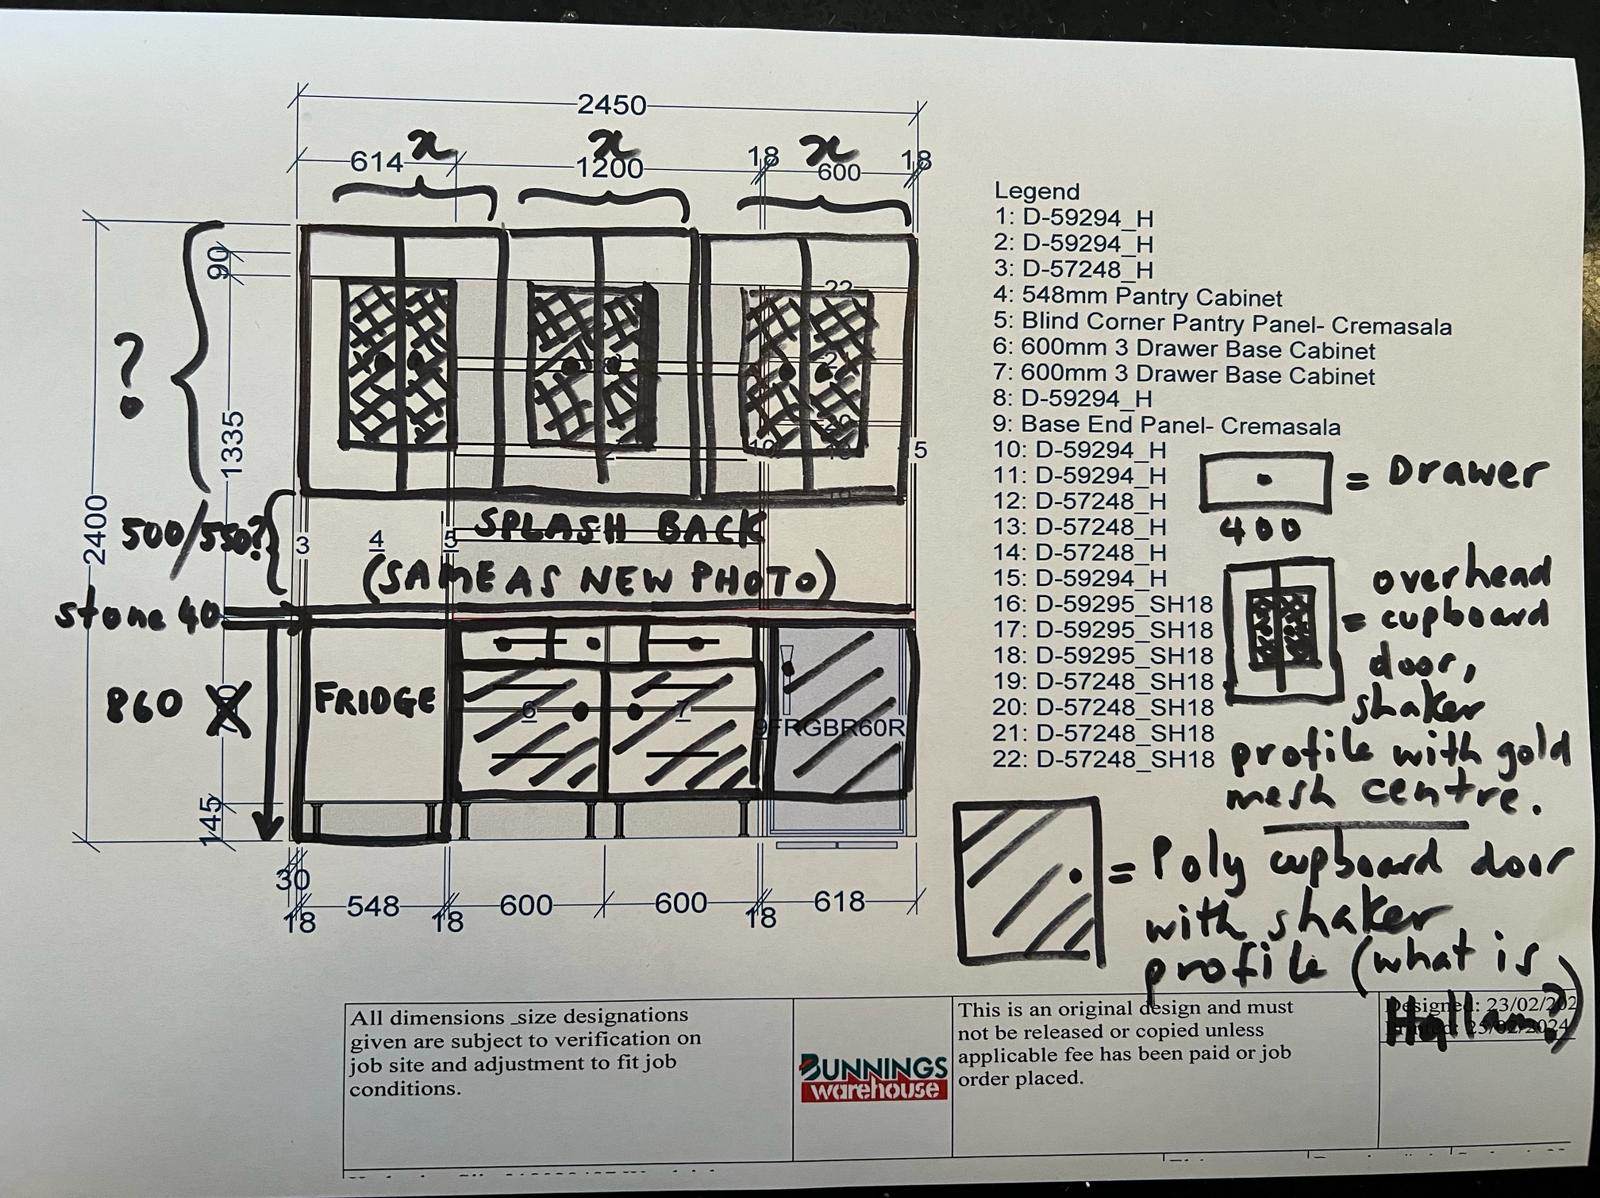 2450
x x x
614 1200 18 600 18
90
?
1335
2400
22
500/550?
3 4 5 SPLASH BACK
(SAME AS NEW PHOTO)
stone 40
860
FRIDGE
6 7 9FRGBR60R
145
30
18 548 18 600 600 18 618
5
Legend
1: D-59294_H
2: D-59294_H
3: D-57248_H
4: 548mm Pantry Cabinet
5: Blind Corner Pantry Panel- Cremasala
6: 600mm 3 Drawer Base Cabinet
7: 600mm 3 Drawer Base Cabinet
8: D-59294_H
9: Base End Panel- Cremasala
10: D-59294_H
11: D-59294_H
12: D-57248_H
13: D-57248_H
14: D-57248_H
15: D-59294_H
16: D-59295_SH18
17: D-59295_SH18
18: D-59295_SH18
19: D-57248_SH18
20: D-57248_SH18
21: D-57248_SH18
22: D-57248_SH18
= Drawer
400
overhead
= cupboard
door,
shaker
profile with gold
mesh centre.
= Poly cupboard door
with shaker
profile (what is
All dimensions _size designations
given are subject to verification on
job site and adjustment to fit job
conditions.
BUNNINGS
warehouse
This is an original design and must
not be released or copied unless
applicable fee has been paid or job
order placed.
Designed: 23/02/202
25/02/2024